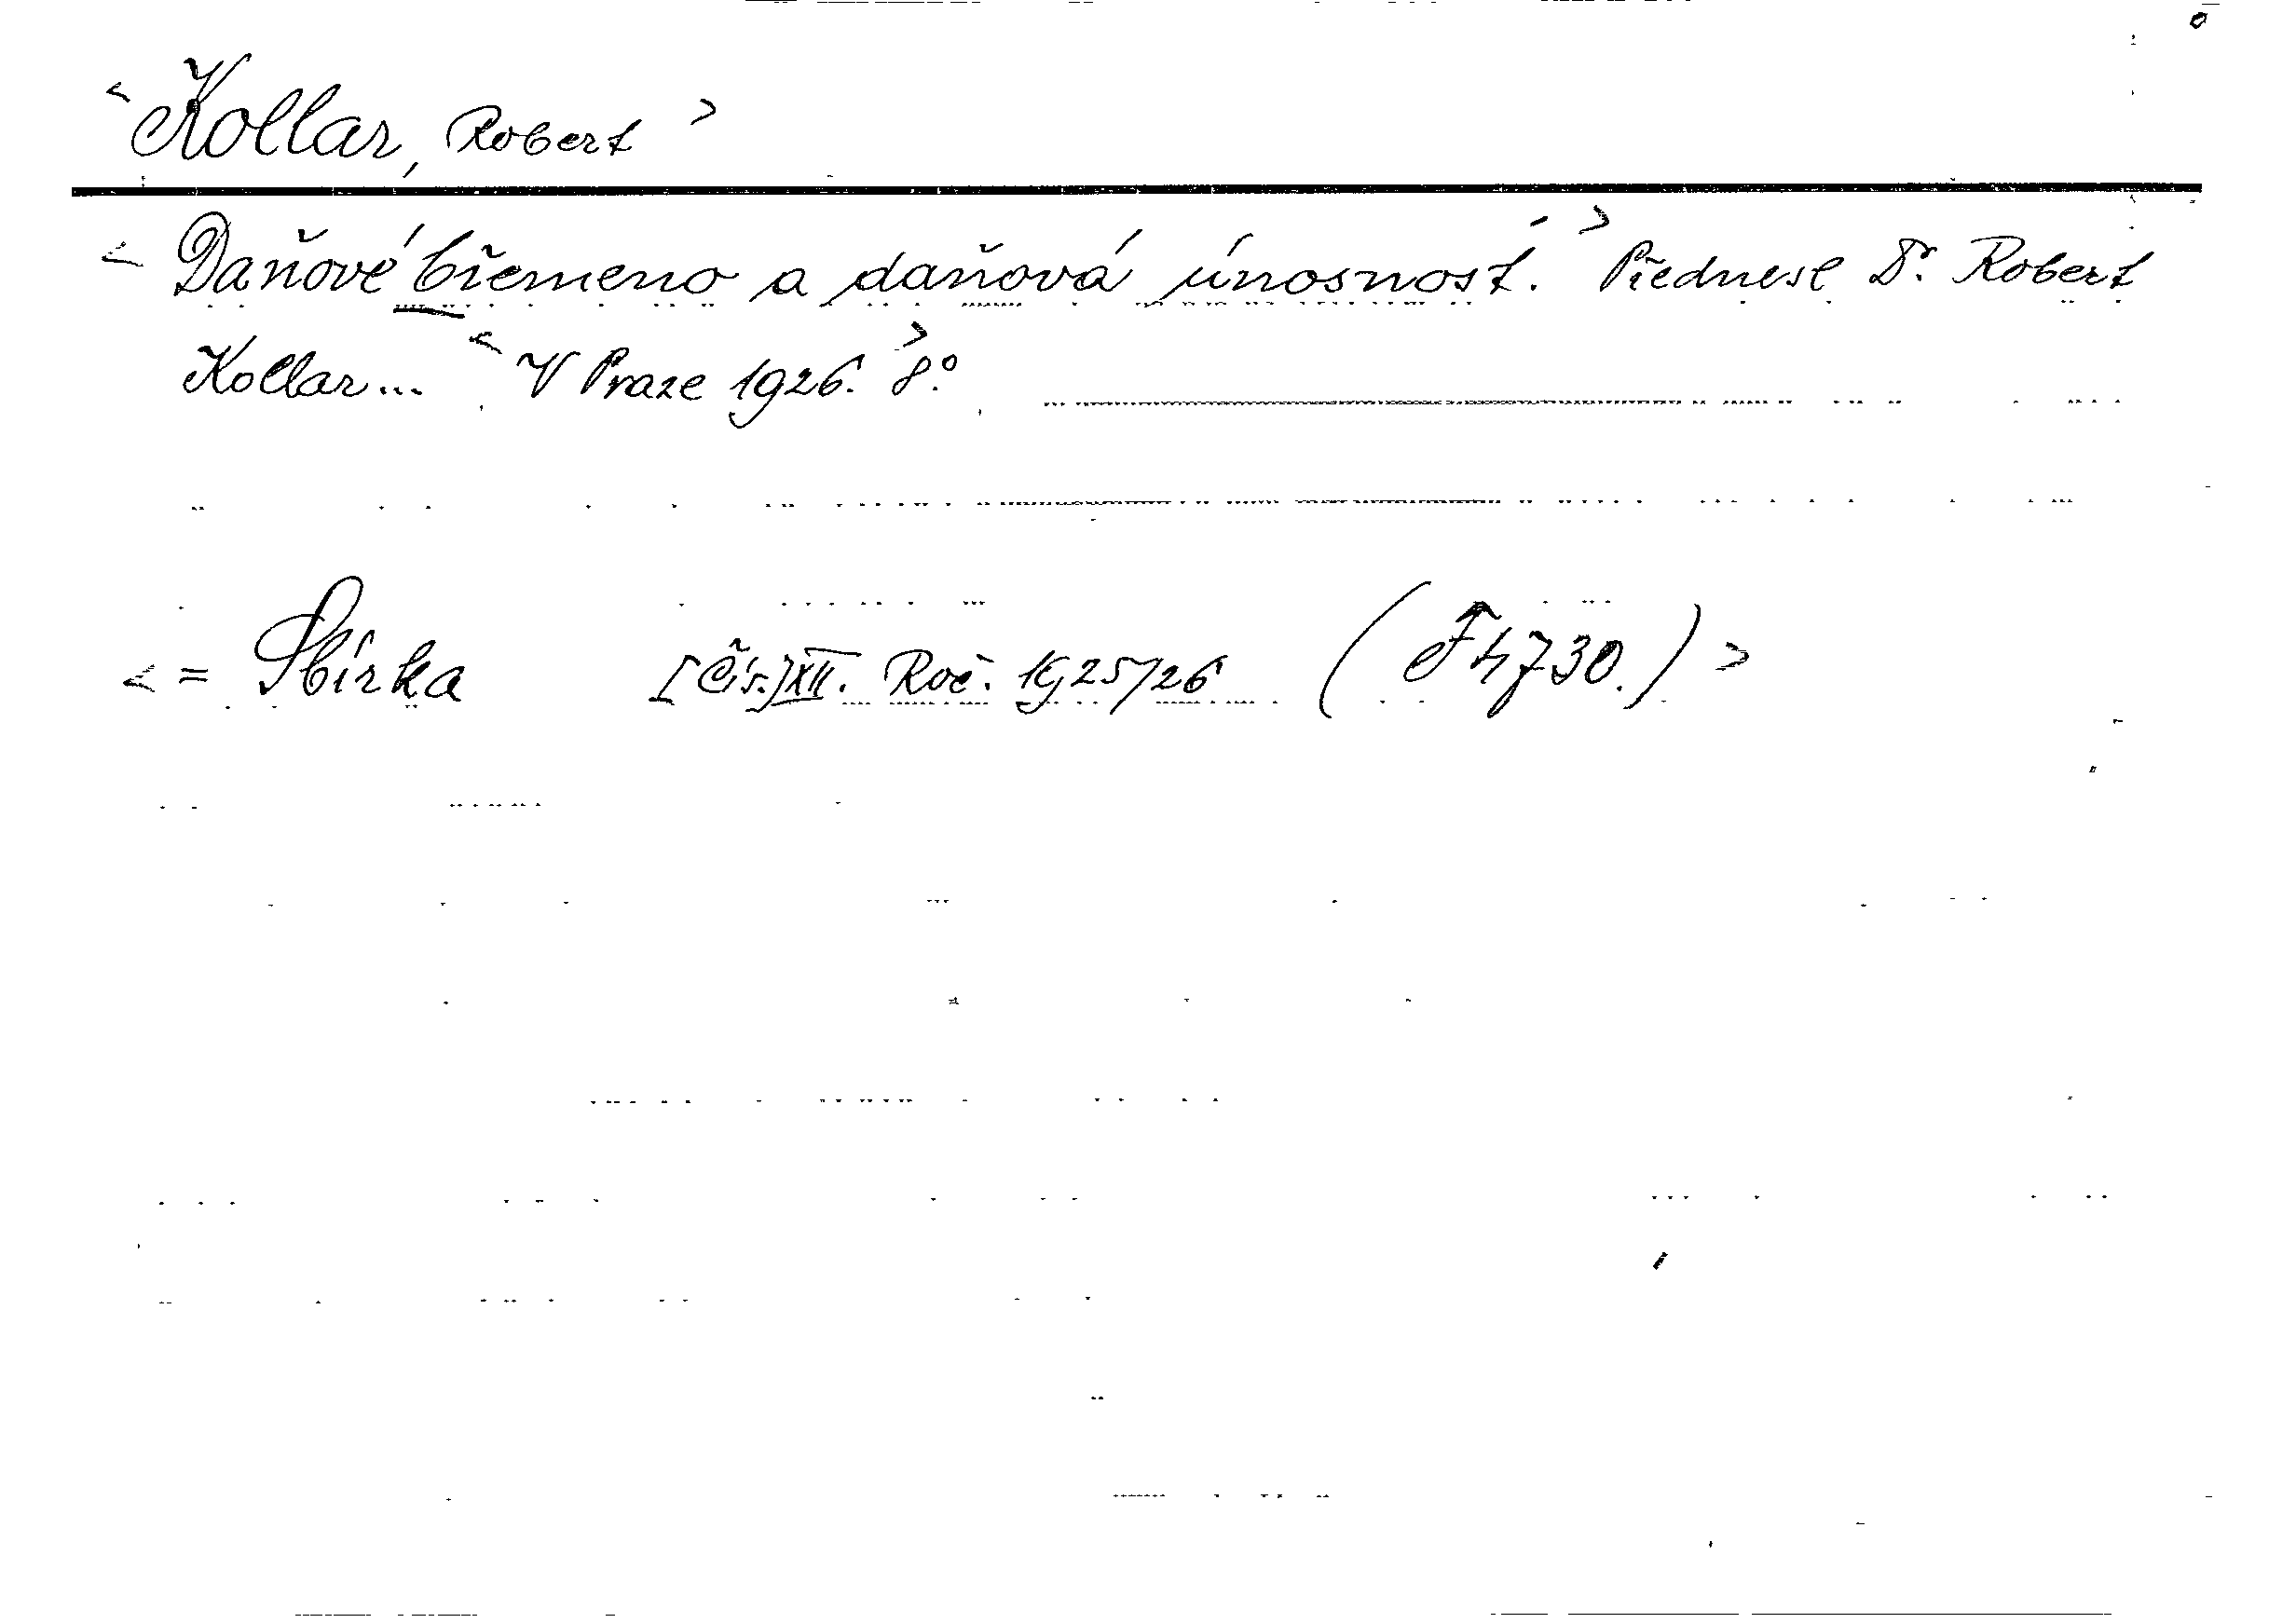 <Kollar, Robert>
<Daňové břemeno a daňová únosnost.> Přednesl Dr. Robert
Kollar... <V Praze 1926.> 8.°
<= Sbírka [Čís.] XII. Roč. 1925/26 (F 4730.)>